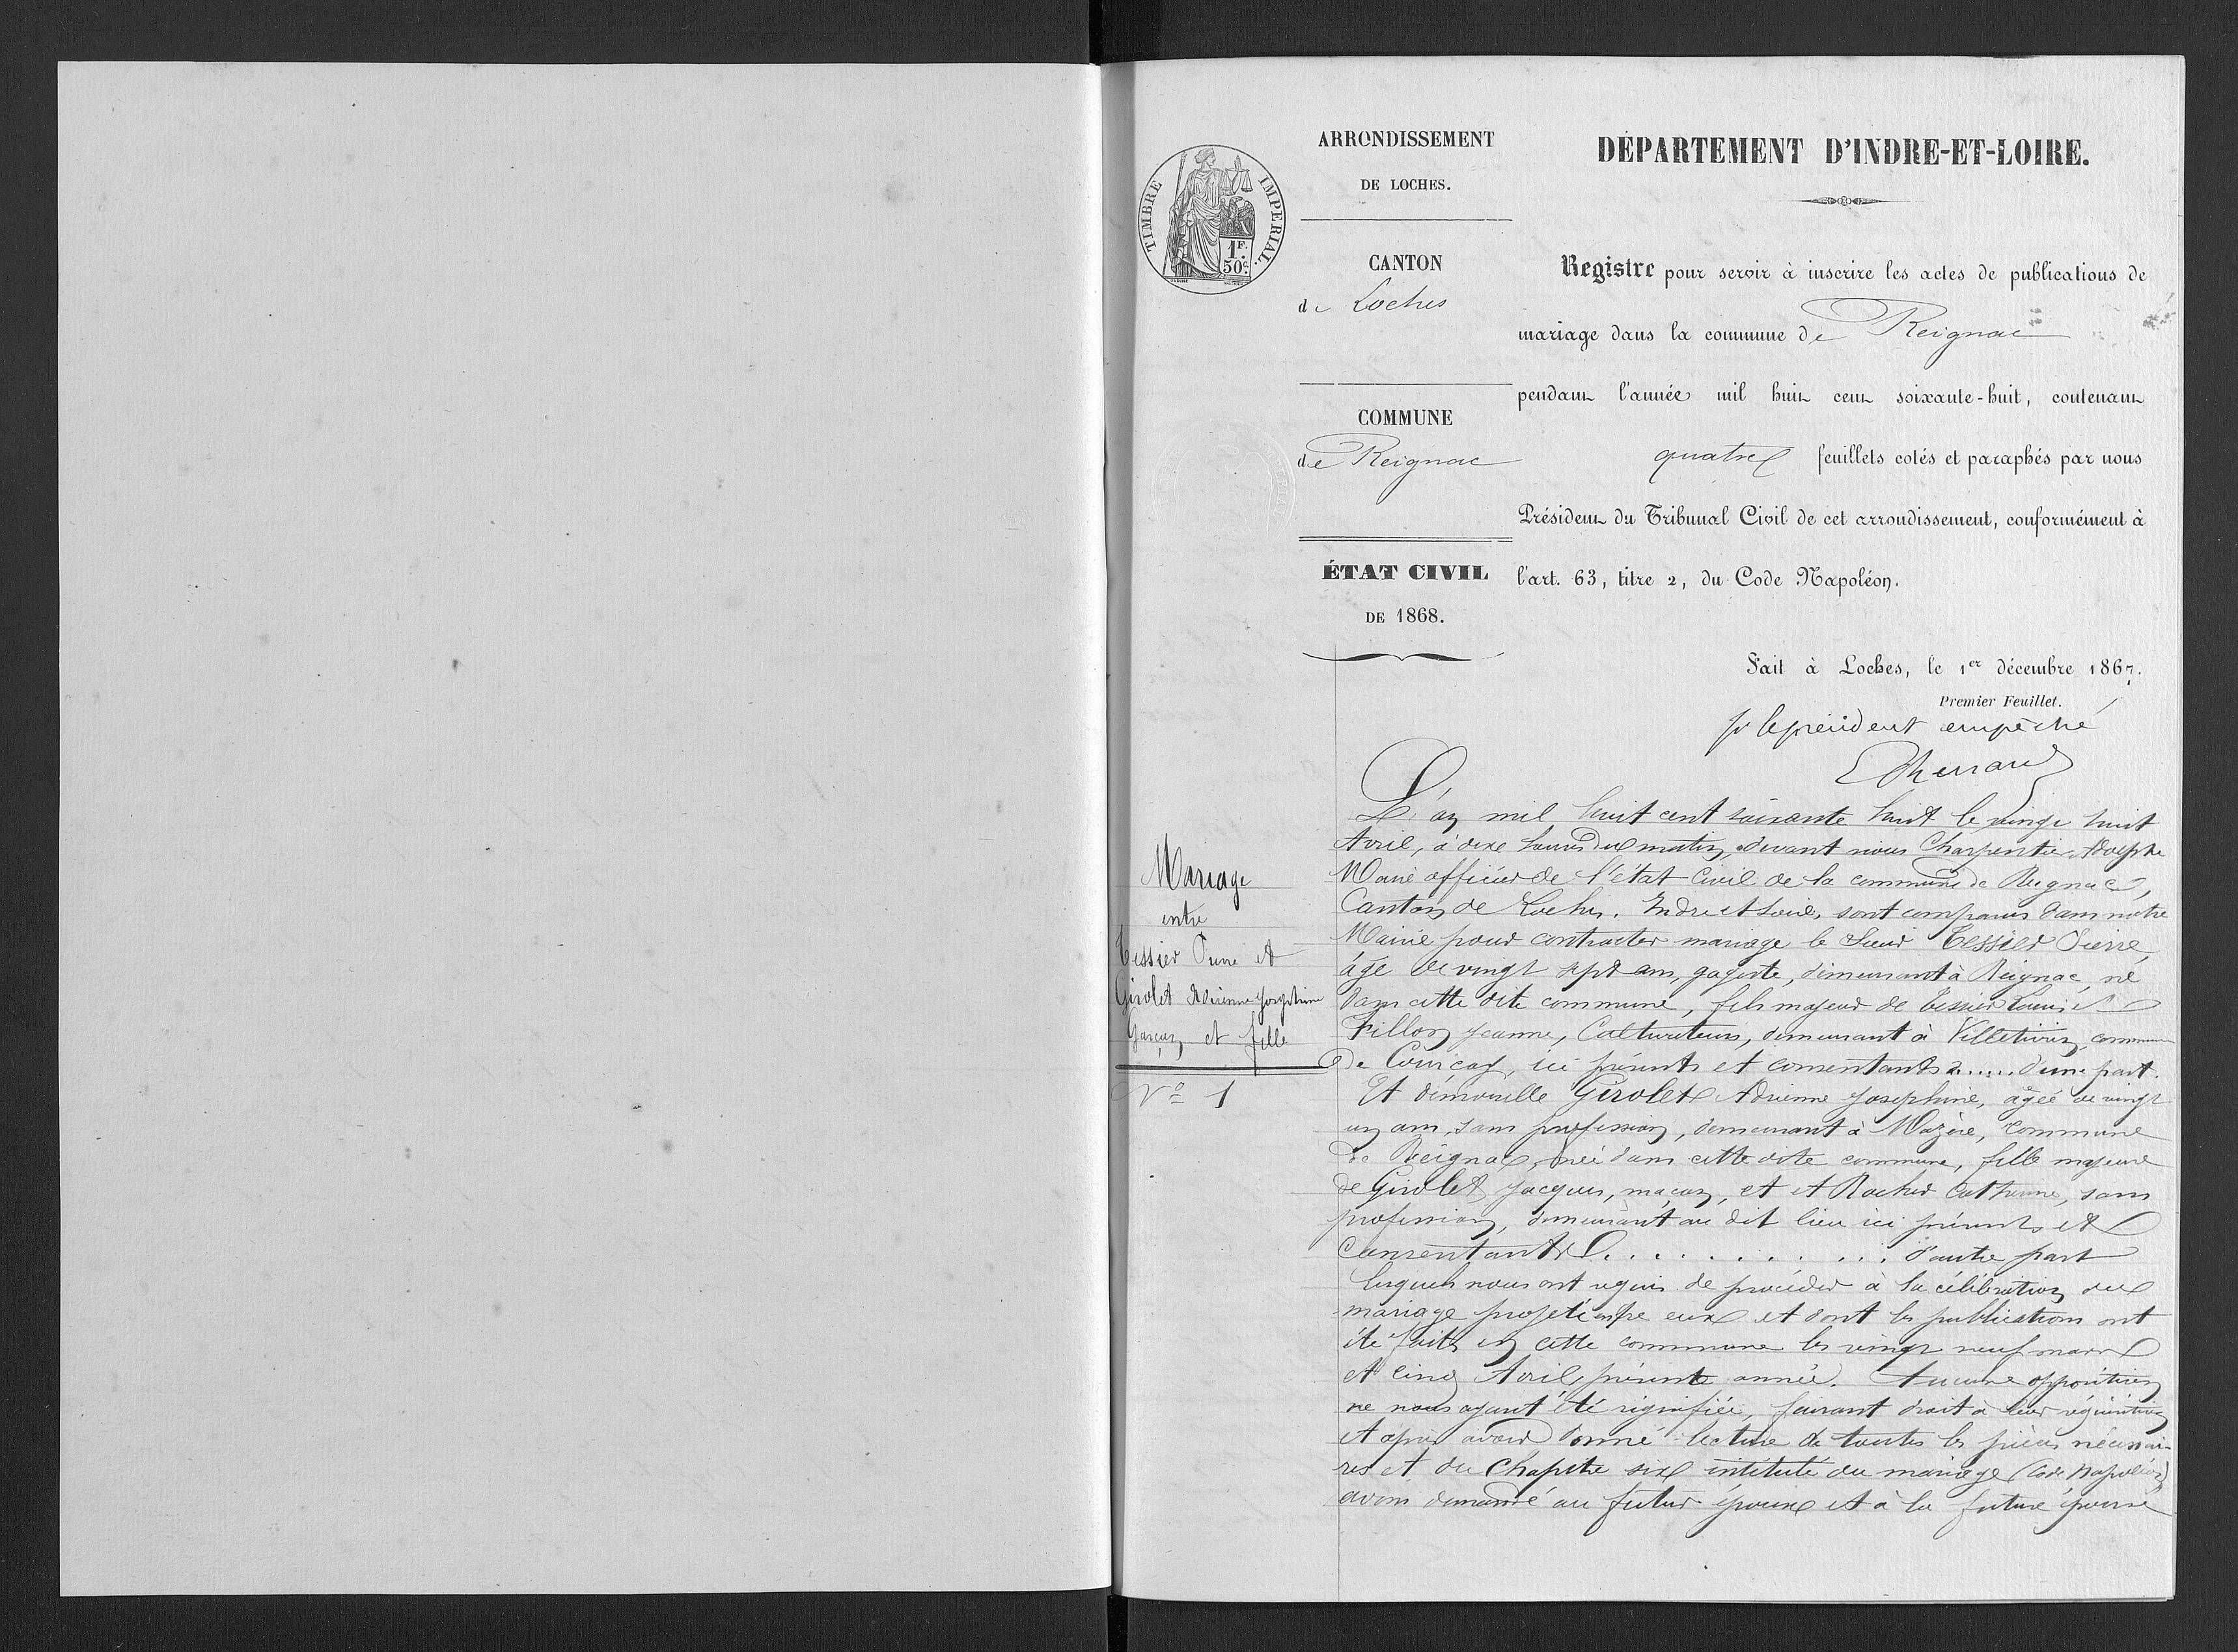 ARRONDISSEMENT
DE LOCHES.
CANTON
de Loches
COMMUNE
de Reignac
ÉTAT CIVIL
DE 1868.
TIMBRE IMPERIAL.
1F.
50c.
DÉPARTEMENT D'INDRE-ET-LOIRE.
Registre pour servir à inscrire les actes de publications de
mariage dans la commune de Reignac
pendant l'année mil huit cent soixante-huit, contenant
quatre feuillets cotés et paraphés par nous
Président du Tribunal Civil de cet arrondissement, conformément à
l'art. 63, titre 2, du Code Napoléon.
Fait à Loches, le 1er décembre 1867.
Premier Feuillet.
pr le président empêché
Mariage
entre
Tessier Pierre et
Girolet Adrienne Josephine
Garçon et fille
No 1
L'an mil huit cent soixante huit le vingt huit
Avril, à dixe heures du matin, devant nous Charpentier Adolphe
Maire officier de l'état civil de la commune de Reignac,
Canton de Loches. Indre et Loire, sont comparus dans notre
Mairie pour contracter mariage le Sieur Tessier Pierre,
âgé de vingt sept ans, gagiste, demeurant à Reignac, né
dans cette dite commune, fils majeur de Tessier Louis et
Fillon Jeanne, Cultivateurs, demeurant à commune
de Courçay, ici présents et consentants ..... d'une part.
Et demoiselle Girolet Adrienne Josephine, âgée de vingt
un ans, sans profession, demeurant à Mazère, commune
de Reignac, née dans cette dite commune, fille majeure
de Girolet Jacques, maçon, et et Rocher Catherine, sans
profession, demeurant au dit lieu ici présents et
Consentants ............ d'autre part
Lesquels nous ont requis de procéder à la célébration du
mariage projeté entre eux et dont les publications ont
été faites en cette commune les vingt neuf mars
et cinq Avril, présente année. Aucune opposition
ne nous ayant été signifiée, faisant droit à leur réquisition
et après avoir donné lecture de toutes les pièces nécessai-
res et du Chapitre six intitulé du mariage (Code Napoléon)
avons demandé au futur époux et à la future épouse